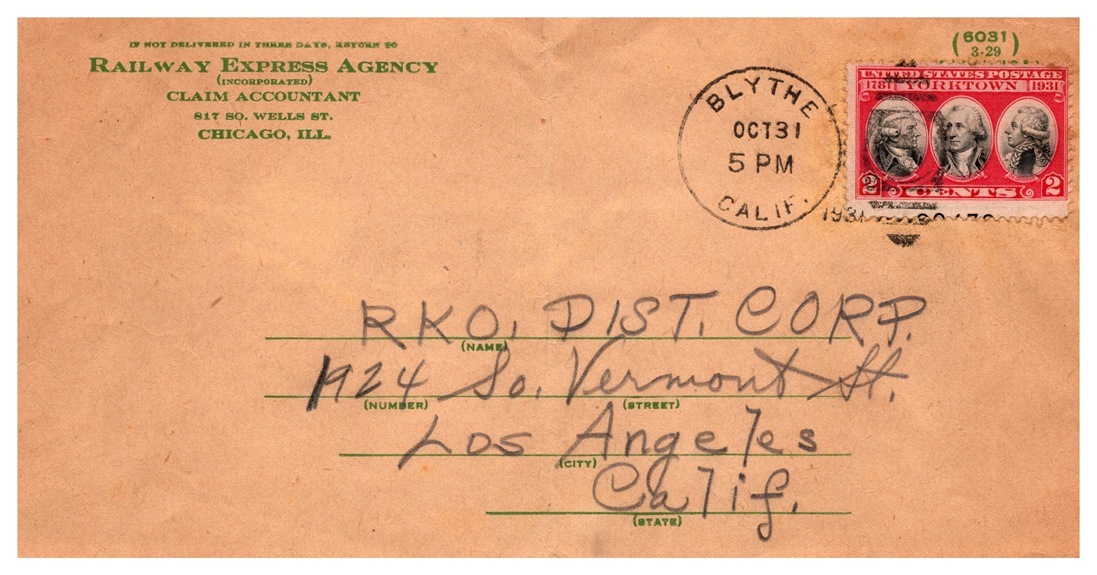 IF NOT DELIVERED IN THREE DAYS, RETURN TO
RAILWAY EXPRESS AGENCY
(INCORPORATED)
CLAIM ACCOUNTANT
817 SO. WELLS ST.
CHICAGO, ILL.
(6031)
3-29
BLYTHE
OCT 31
5 PM
CALIF.
1931
UNITED STATES POSTAGE
1781 YORKTOWN 1931
2 CENTS 2
RKO. DIST. CORP.
(NAME)
1924 So. Vermont St.
(NUMBER) (STREET)
Los Angeles
(CITY)
Calif.
(STATE)